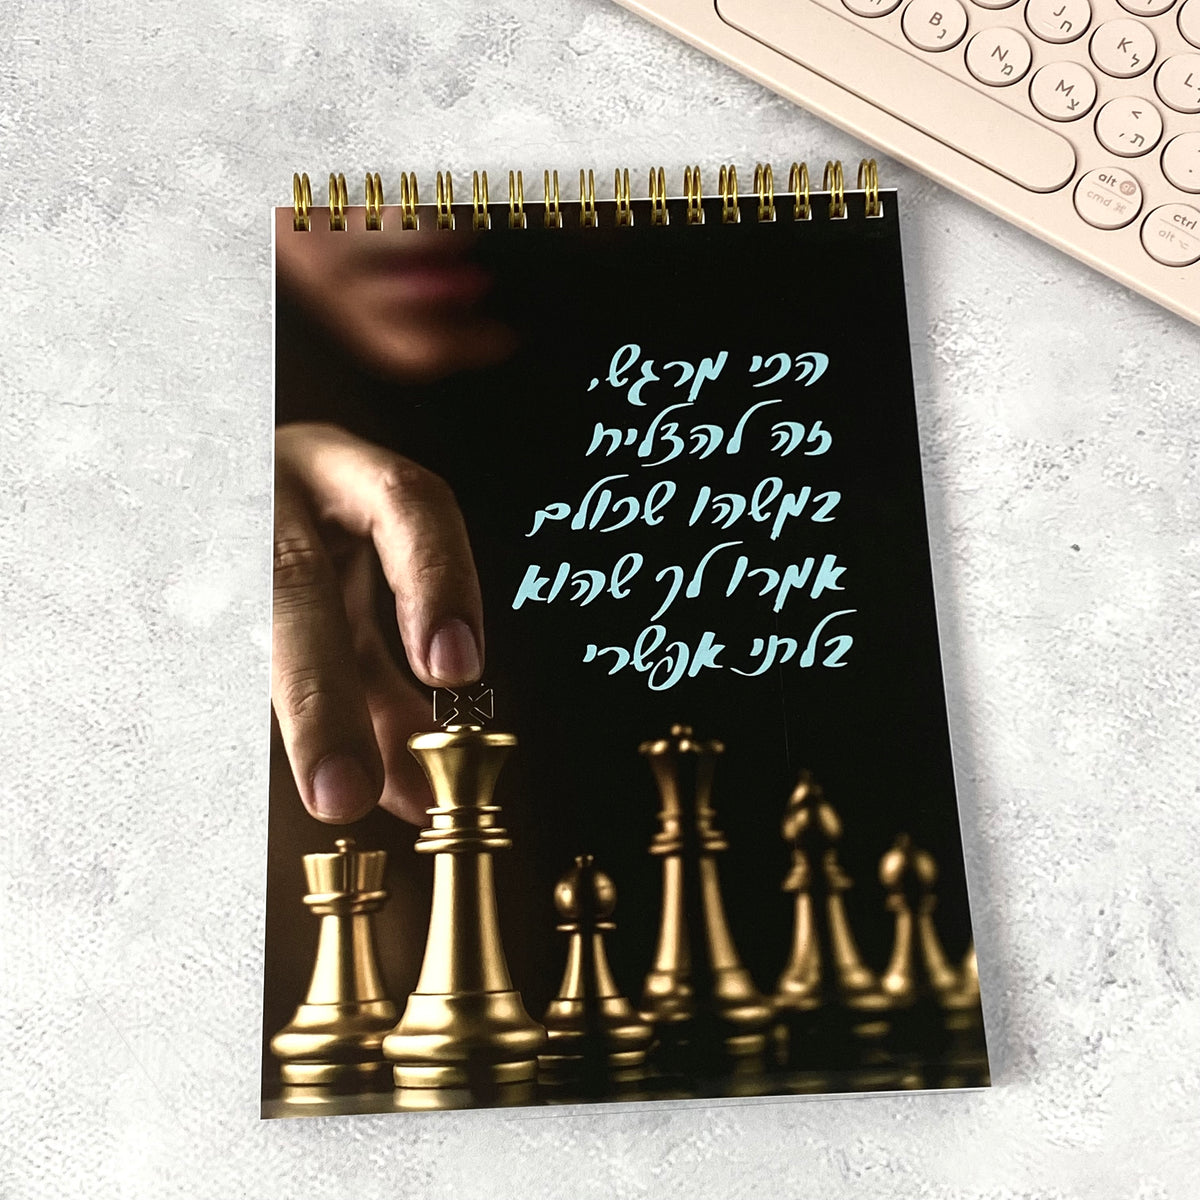 הכי מרגש,
זה להצליח
במשהו שכולם
אמרו לך שהוא
בלתי אפשרי
B נ
N מ
J ח
K ל
M צ
L
< ת ,
alt gr
cmd ⌘
ctrl
alt ⌥